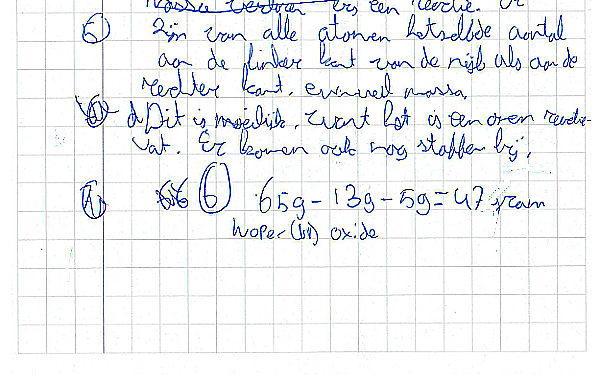 massa verloren bij een reactie. Er
5 Zijn van alle atomen hetzelfde aantal
aan de linker kant van de pijl als aan de
rechter kant, evenveel massa.
d Dit is moeilijk, want het is een open reactie-
vat. Er komen ook nog stoffen bij,
A 6 65g - 13g - 5g = 47 gram
koper (II) oxide